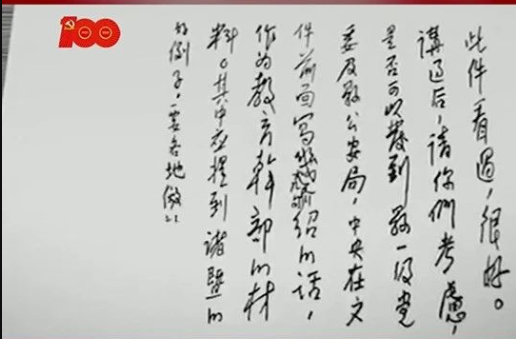 100
此件看过，很好。
講过后，請你們考慮，
是否可以發到县一级党
委及县公安局，中央在文
件前面写几句介绍的话，
作为教育幹部的材
料。其中应提到諸暨的
好例子，要各地仿